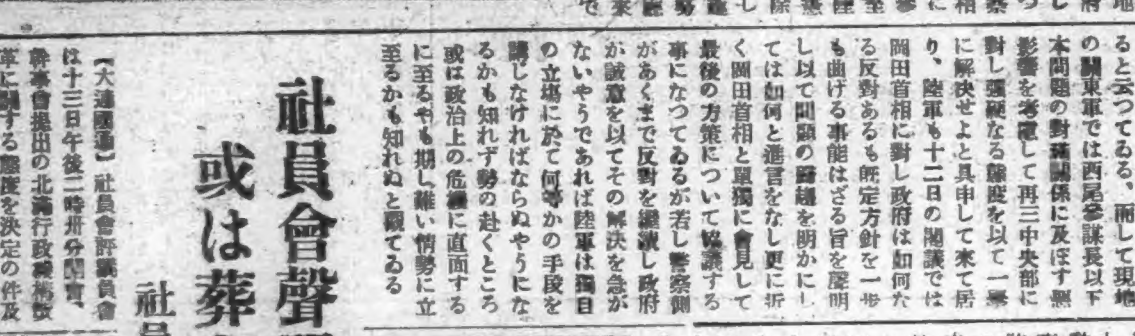 ると云つてゐる、而して現地
の關東軍では西尾參謀長以下
本問題の對滿關係に及ぼす惡
影響を考慮して再三中央部に
對し强硬なる態度を以て一擧
に解決せよと具申して來て居
り、陸軍も十二日の閣議では
岡田首相に對し政府は如何な
る反對あるも旣定方針を一步
も曲げる事能はざる旨を聲明
し以て問題の歸趨を明かにし
ては如何と進言をなし更に折
く岡田首相と單獨に會見して
最後の方策について協議する
事になつてゐるが若し警察側
があくまで反對を繼續し政府
が誠意を以てその解決を急が
ないやうであれば陸軍は獨自
の立場に於て何等かの手段を
講じなければならぬやうにな
るかも知れず勢の赴くところ
或は政治上の危機に直面する
に至るやも期し難い情勢に立
至るかも知れぬと觀てゐる
社員會聲
或は葬
社員
【大連國通】社員會評議員會
は十三日午後二時卅分開會、
幹事會提出の北滿行政機構改
革に關する態度を決定の件及